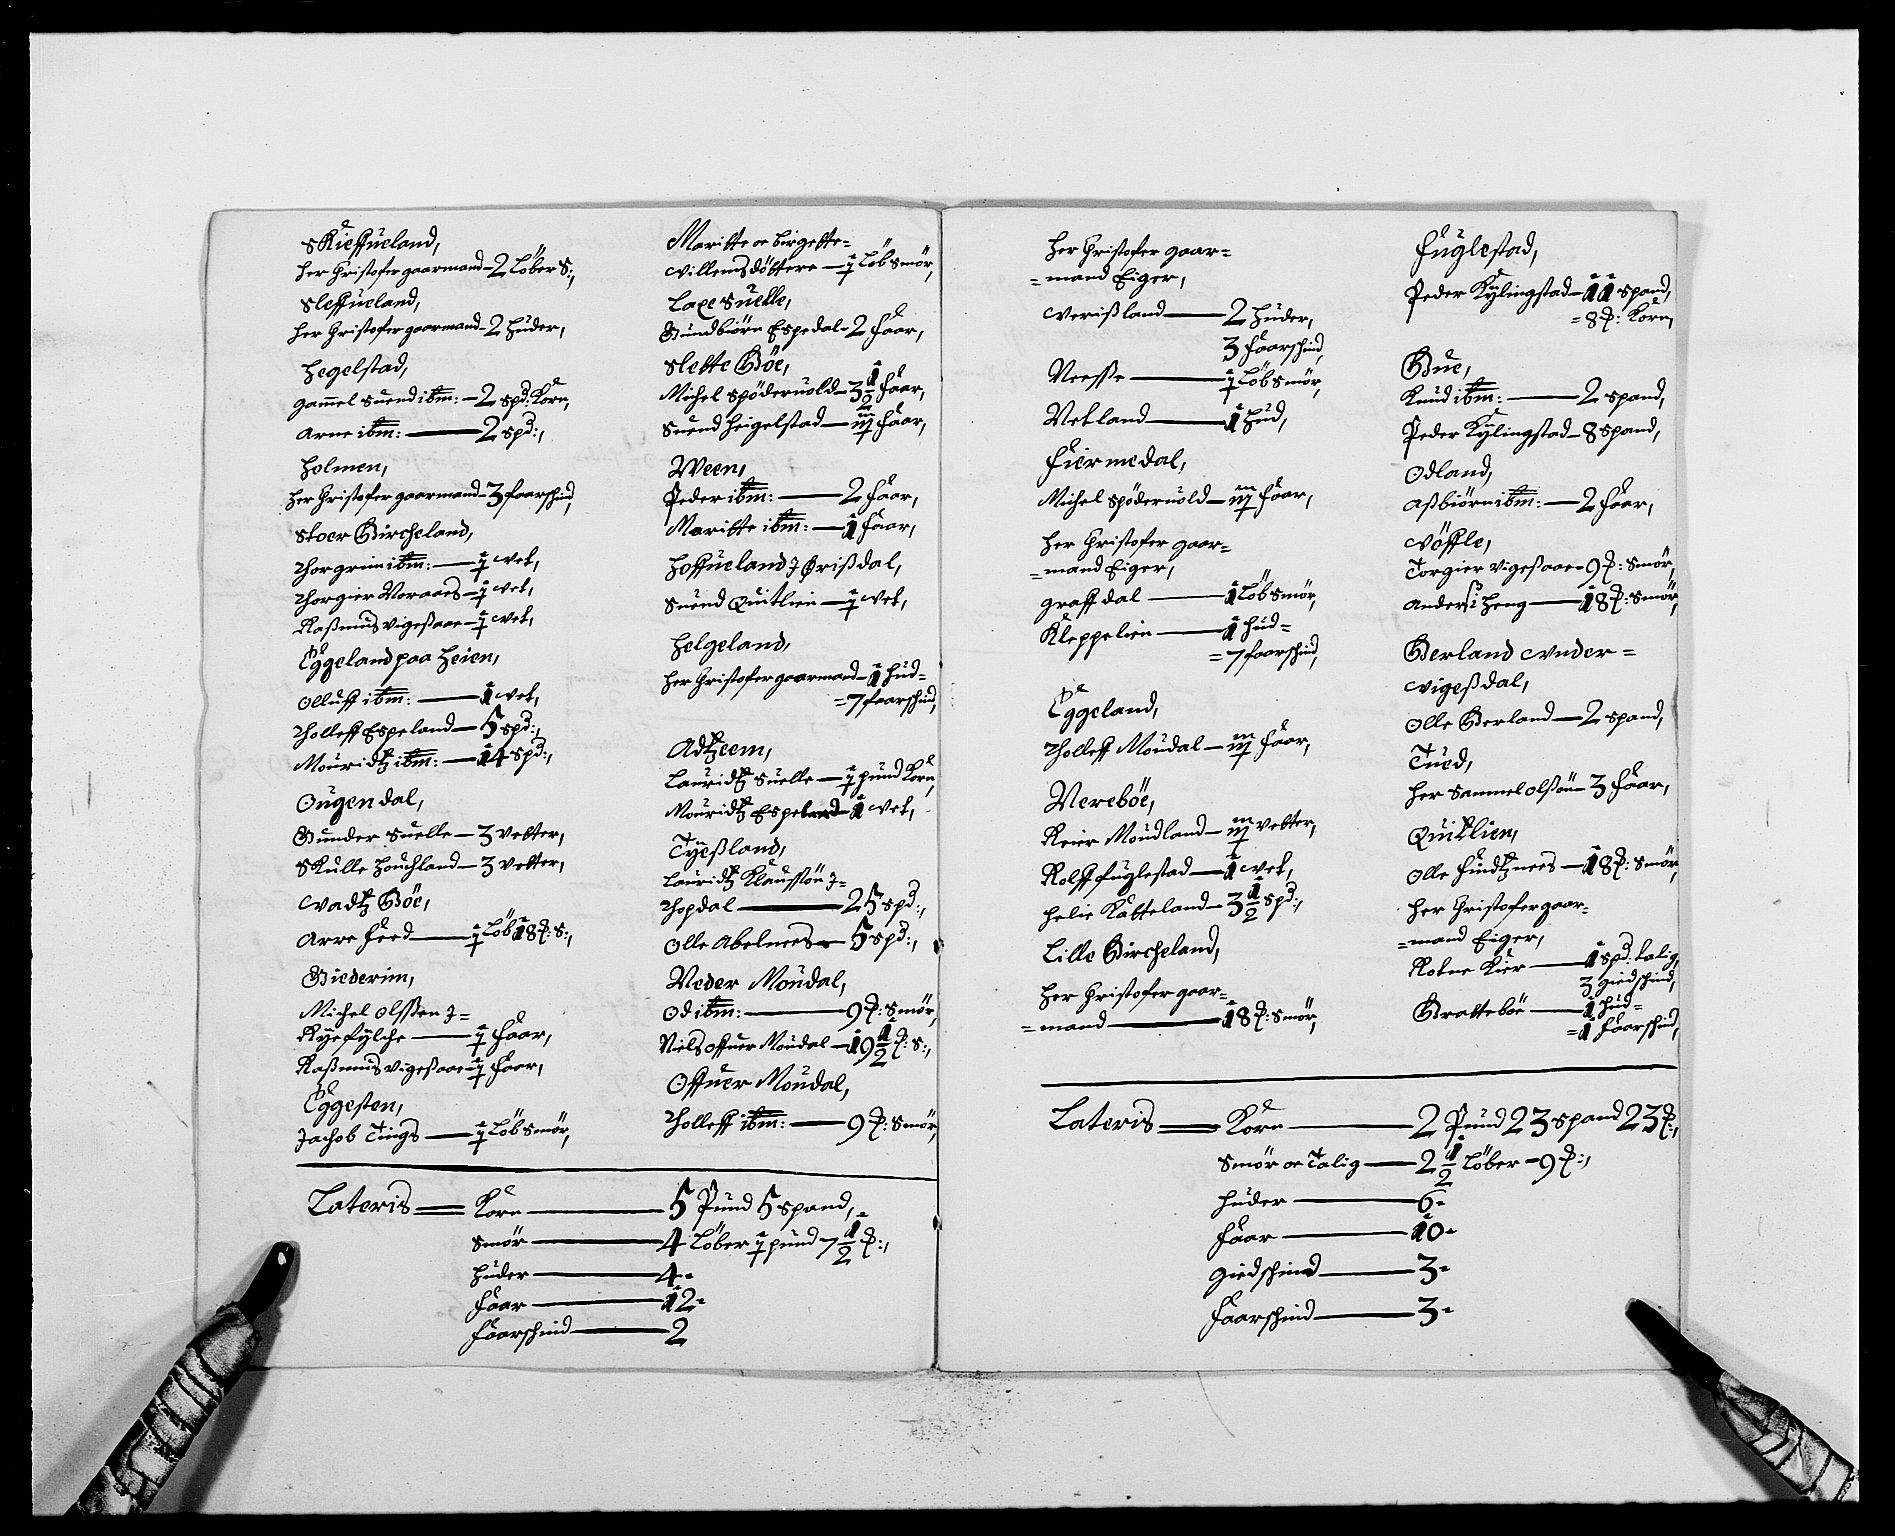 Skieffueland,
Her Christofer gaarmand - 2 Löber S:,
Sleffueland,
Her Christofer gaarmand - 2 Huder,
Hegelstad,
gammel Suend ibm: - 2 spd: Korn,
Arne ibm: - 2 spd:,
Holmen,
Her Christofer gaarmand - 3 faarschind,
Stoer Bircheland,
Thorgrim ibm: - ½ vet,
Thorgier Voraaes - ½ vet,
Rassmus Vigessaae - ½ vet,
Eggeland paa Heien,
Olluff ibm: - 1 vet,
Tholleff Espeland - 5 spd:,
Mouridtz ibm: - 14 spd:,
Ougendal,
Gunder Suelle - 3 vetter,
Skulle Houchland - 3 vetter,
Vadtz Böe,
Arre Feed - ½ Löb 18 ℔: S:,
Giederim,
Michel Olssen J=
Ryefylche - ½ Faar,
Rassmus Vigessaae - ½ Faar,
Eggesten,
Jachob Tings - ½ Löb Smör,
Maritte oc Birgette=
Villemsdöttere - ½ Löb Smör,
Laxesuelle,
Gundbiörn Espedal - 2 Faar,
Slette Böe,
Michel Spöderuold - 3½ Faar,
Suend Heigelstad - Faar,
Ween,
Peder ibm: - 2 Faar,
Maritte ibm: - 1 Faar,
Hoffueland J Ørissdal,
Suend Quitlien - ½ vet,
Helgeland,
Her Christofer gaarmand - 1 Hud=
=7 faarschind,
Adtzeem,
Lauridtz Suelle - ½ pund Korn,
Mouridtz Espeland - 1 vet,
Tyessland,
Lauridtz Klaussön J=
Thopdal - 25 spd:,
Olle Abelnees - 5 spd:,
Neder Moudal,
Od ibm: - 9 ℔: Smör,
Niels offuer Moudal - 19½ ℔: S:,
Offuer Moudal,
Tholleff ibm: - 9 ℔: Smör,
Lateris = Korn - 5 Pund 5 spand,
Smör - 4 Löber ½ pund 7½ ℔:,
Huder - 4 -
Faar - 12 -
Faarschind - 2
Her Christofer gaar=
=mand Eiger,
Verissland - 2 Huder,
3 Faarschind,
Neesse - ½ Löb Smör,
Netland - 1 Hud,
Fiermedal,
Michel Spöderuold - Faar,
Her Christofer gaar=
=mand Eiger,
Graffdal - 1 Löb Smör,
Kleppelien - 1 Hud=
=7 faarschind,
Eggeland,
Tholleff Moudal - Faar,
Nereböe,
Reier Moudland - vetter,
Rolff Fuglestad - 1 vet,
Helie Katteland - 3½ spd:,
Lille Bircheland,
Her Christofer gaar=
=mand - 18 ℔: Smör,
Fuglestad,
Peder Kylingstad - 11 spand,
=8 ℔: Korn,
Bue,
Knud ibm: - 2 spand,
Peder Kylingstad - 8 spand,
Odland,
Assbiörn ibm: - 2 Faar,
Vöffle,
Torgier Vigessaae - 9 ℔: Smör,
Anders i Heng - 18 ℔: Smör,
Berland Vnder=
Vigessdal,
Olle Berland - 2 spand,
Tued,
Her Sammel Olssön - 3 Faar,
Quitlien,
Olle Findtznees - 18 ℔: Smör,
Her Christofer gaar=
=mand Eiger,
Rotne Kier - 1 spd: talig,
3 giedschind,
Bratteböe - 1 Hud=
=1 Faarschind,
Lateris = Korn - 2 Pund 23 spand 23 ℔:,
Smör oc Talig - 2½ Löber - 9 ℔:,
Huder - 6 -
Faar - 10 -
giedschind - 3 -
Faarschind - 3 -